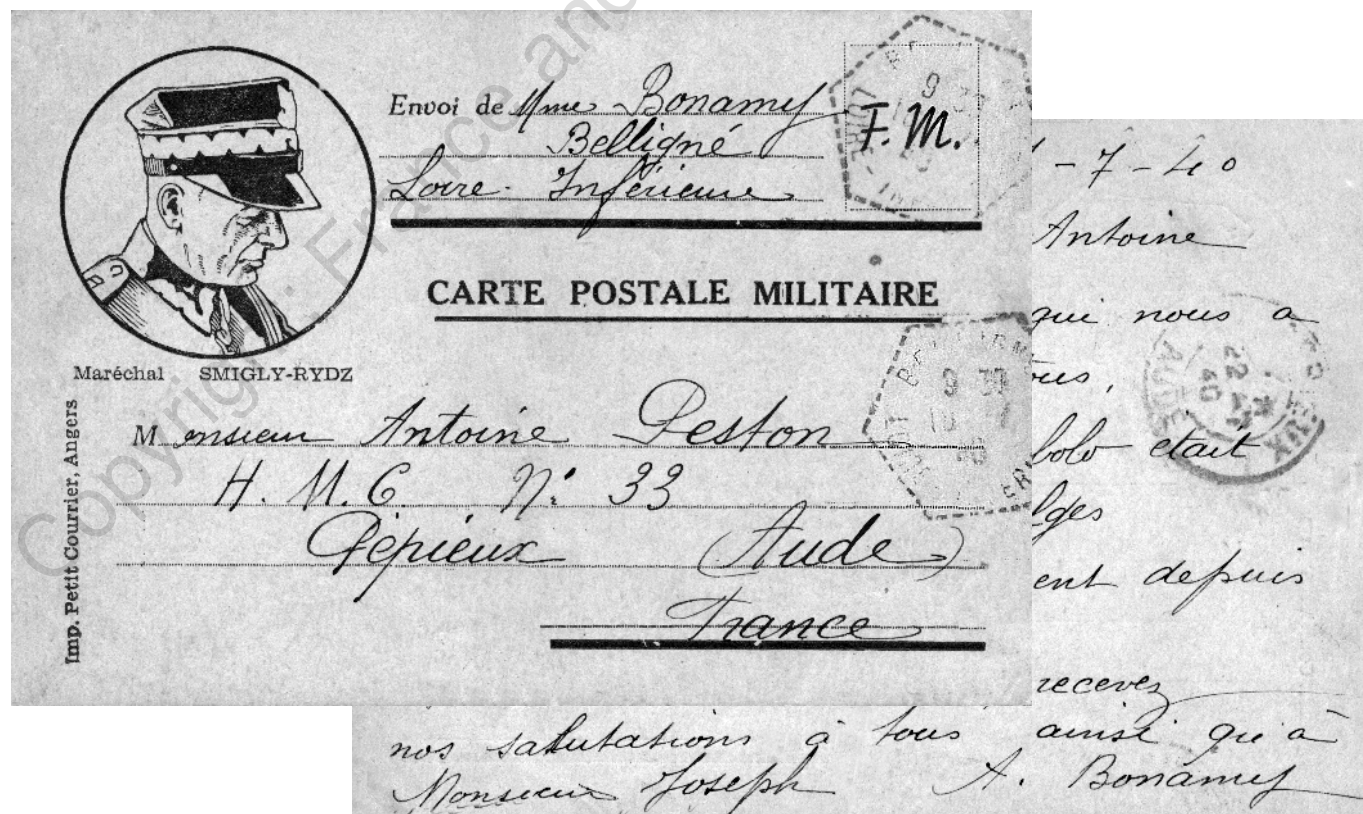 Envoi de Mme Bonamy
Belligné
Loire-Inférieure
F.M.
CARTE POSTALE MILITAIRE
Maréchal SMIGLY-RYDZ
Imp. Petit Courrier, Angers
Monsieur Antoine Peston
H.M.C. N° 33
Pépieux (Aude)
France
-7-40
Antoine
qui nous a
était
ent depuis
recevez
nos salutations à tous ainsi qu'à
Monsieur Joseph A. Bonamy
9 30
22
40
AUDE
Copyright: France and